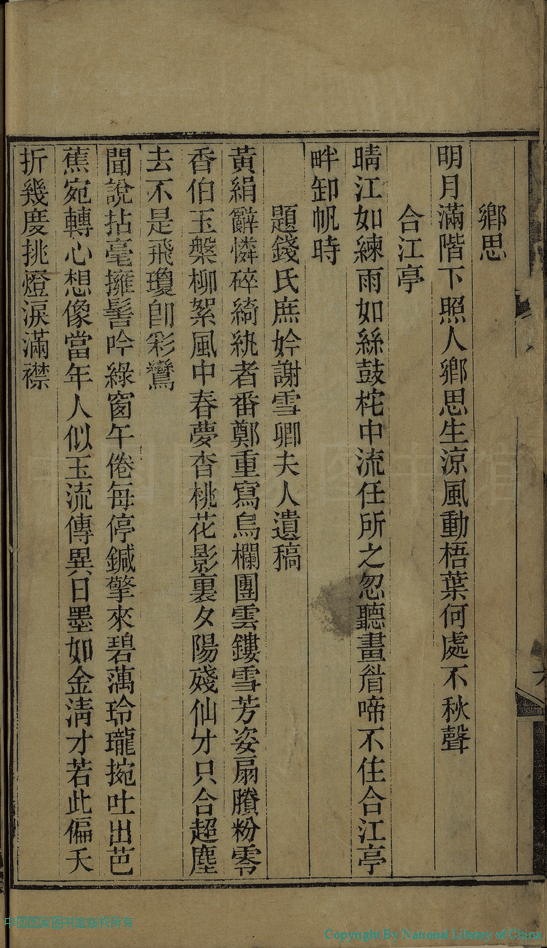 鄉思
明月滿階下照人鄉思生涼風動梧葉何處不秋聲
合江亭
晴江如練雨如絲鼓柁中流任所之忽聽畫眉啼不住合江亭
畔卸帆時
題錢氏庶妗謝雪卿夫人遺稿
黃絹辭憐碎綺紈者番鄭重寫烏欄團雲鏤雪芳姿扇賸粉零
香伯玉槃柳絮風中春夢杳桃花影裏夕陽殘仙才只合超塵
去不是飛瓊卽彩鸞
聞說拈毫擁髻吟綠窗午倦每停鍼擎來碧藕玲瓏捥吐出芭
蕉宛轉心想像當年人似玉流傳異日墨如金淸才若此偏夭
折幾度挑燈淚滿襟
Copyright By National Library of China